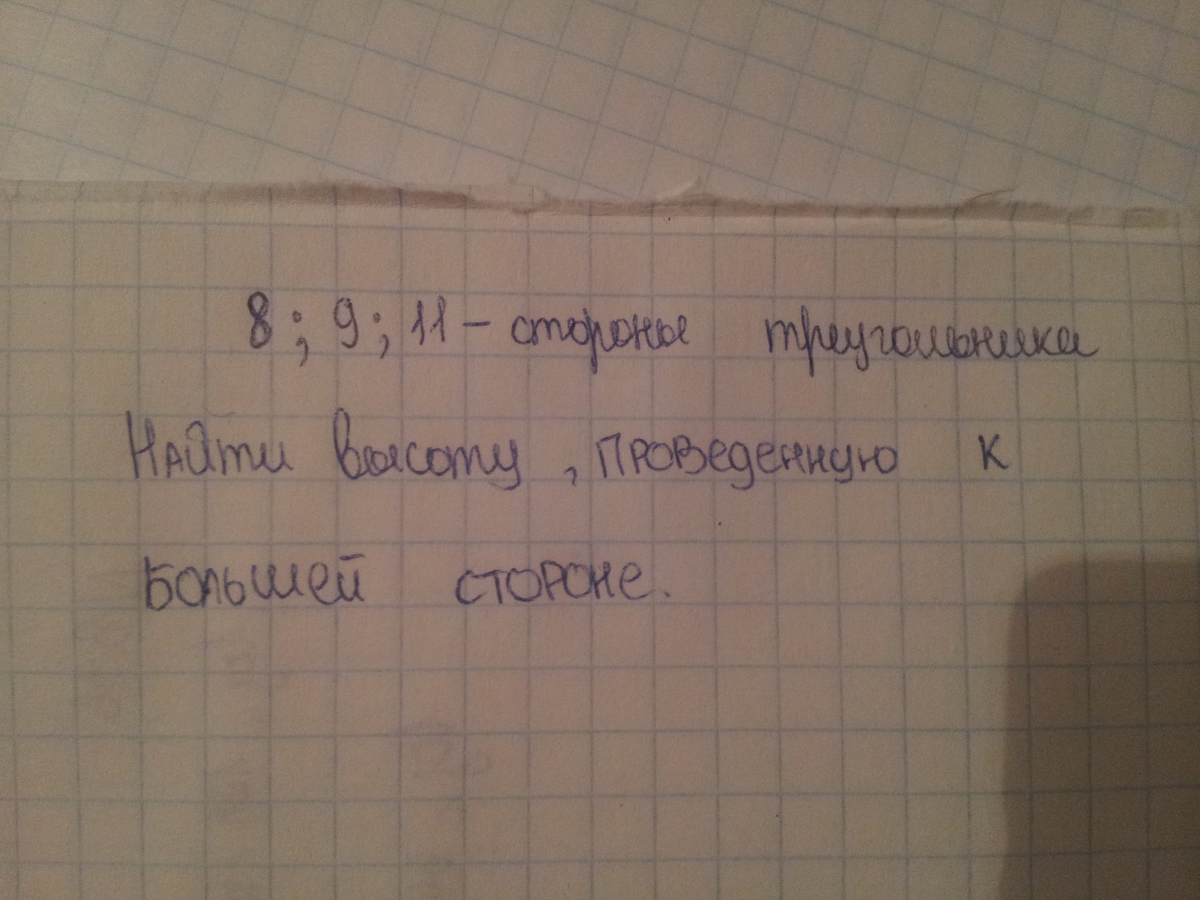 8; 9; 11 – стороны треугольника
Найти высоту, проведенную к
большей стороне.